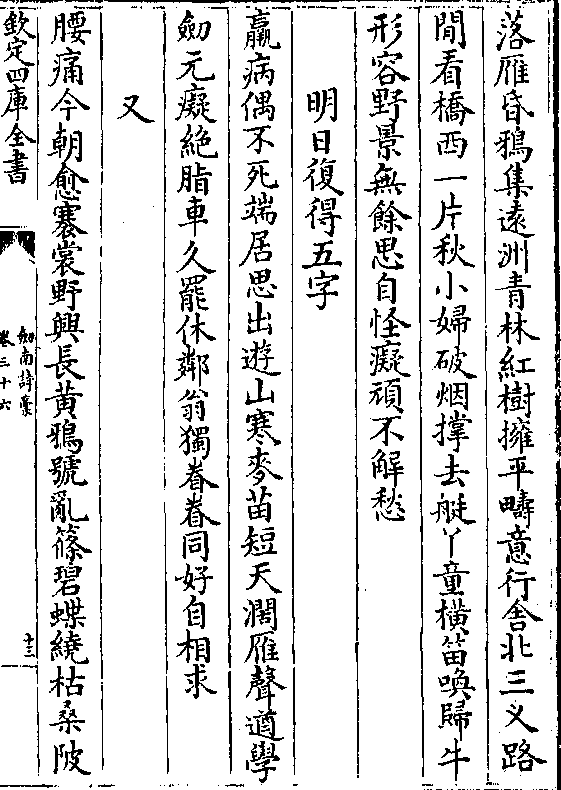 落雁昏鴉集遠洲青林紅樹擁平疇意行舍北三义路
閒看橋西一片秋小婦破烟撑去艇丫童横笛喚歸牛
形容野景無餘思自怪癡頑不解愁
明日復得五字
羸病偶不死端居思出遊山寒麥苗短天濶雁聲遒學
劒元癡絶脂車久罷休鄰翁獨眷眷同好自相求
又
腰痛今朝愈褰裳野興長黄鴉號亂篠碧蝶繞枯桑陂
欽定四庫全書
劒南詩藁
卷三十六
十三